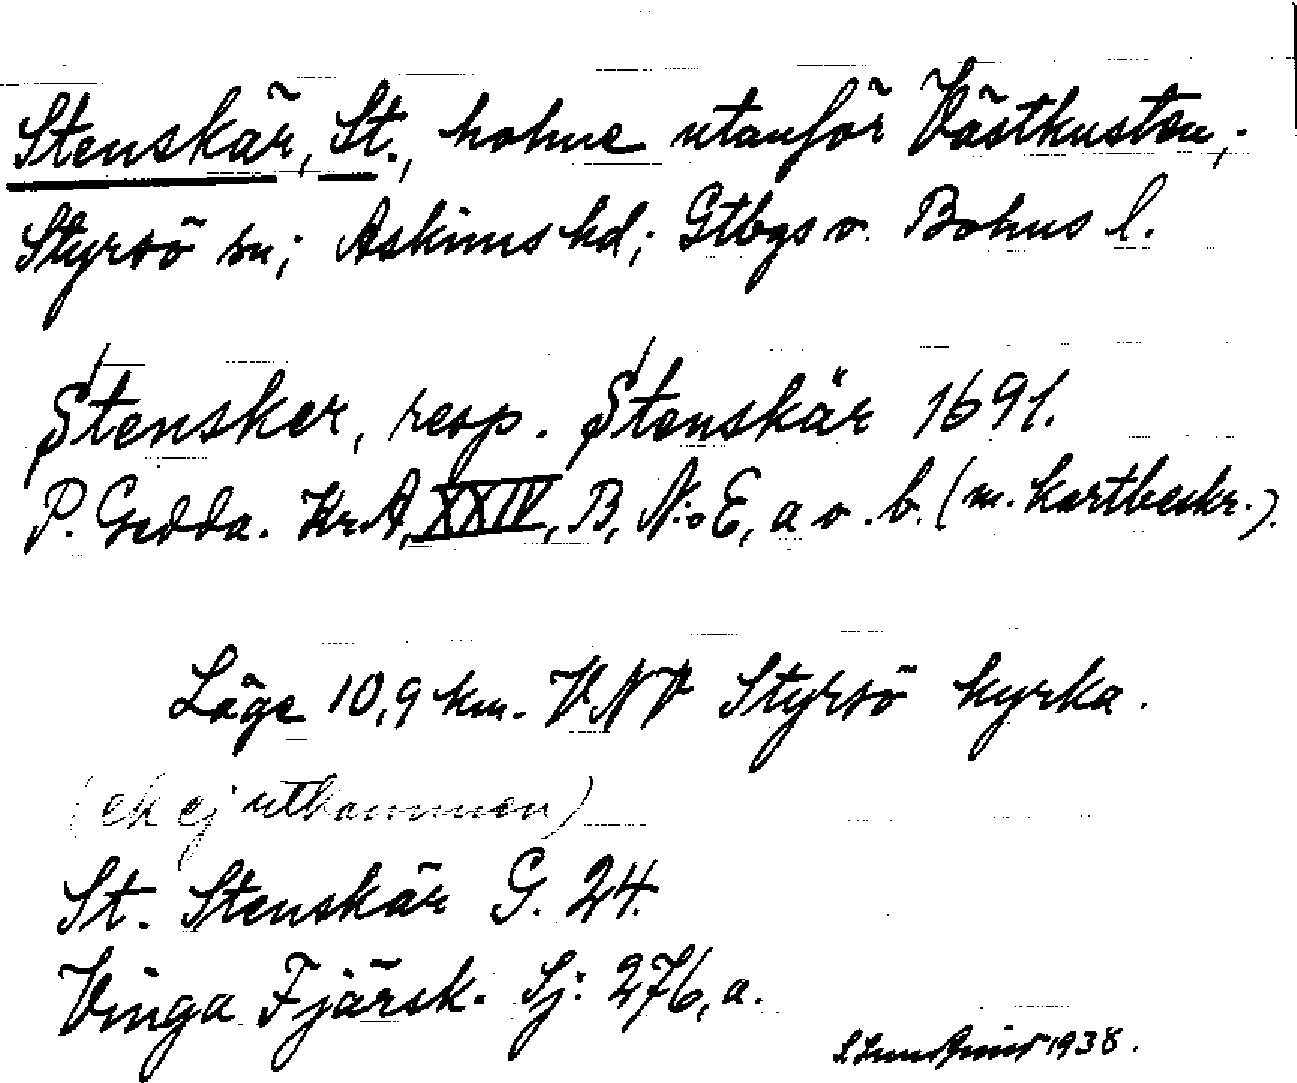 Stenskär, St., holme utanför Västkusten,
Styrsö sn; Askims hd; Gtbgs o. Bohus l.
Stensker, resp. Stenskär 1691.
P. Gedda. Kr.A, XXIV, B, N:o E, a o. b. (m. kartbeskr.).
Läge 10,9 km. VNV Styrsö kyrka.
(ek ej utkommen)
St. Stenskär G. 24.
Vinga Fjärsk. Sj: 276, a.
1938.